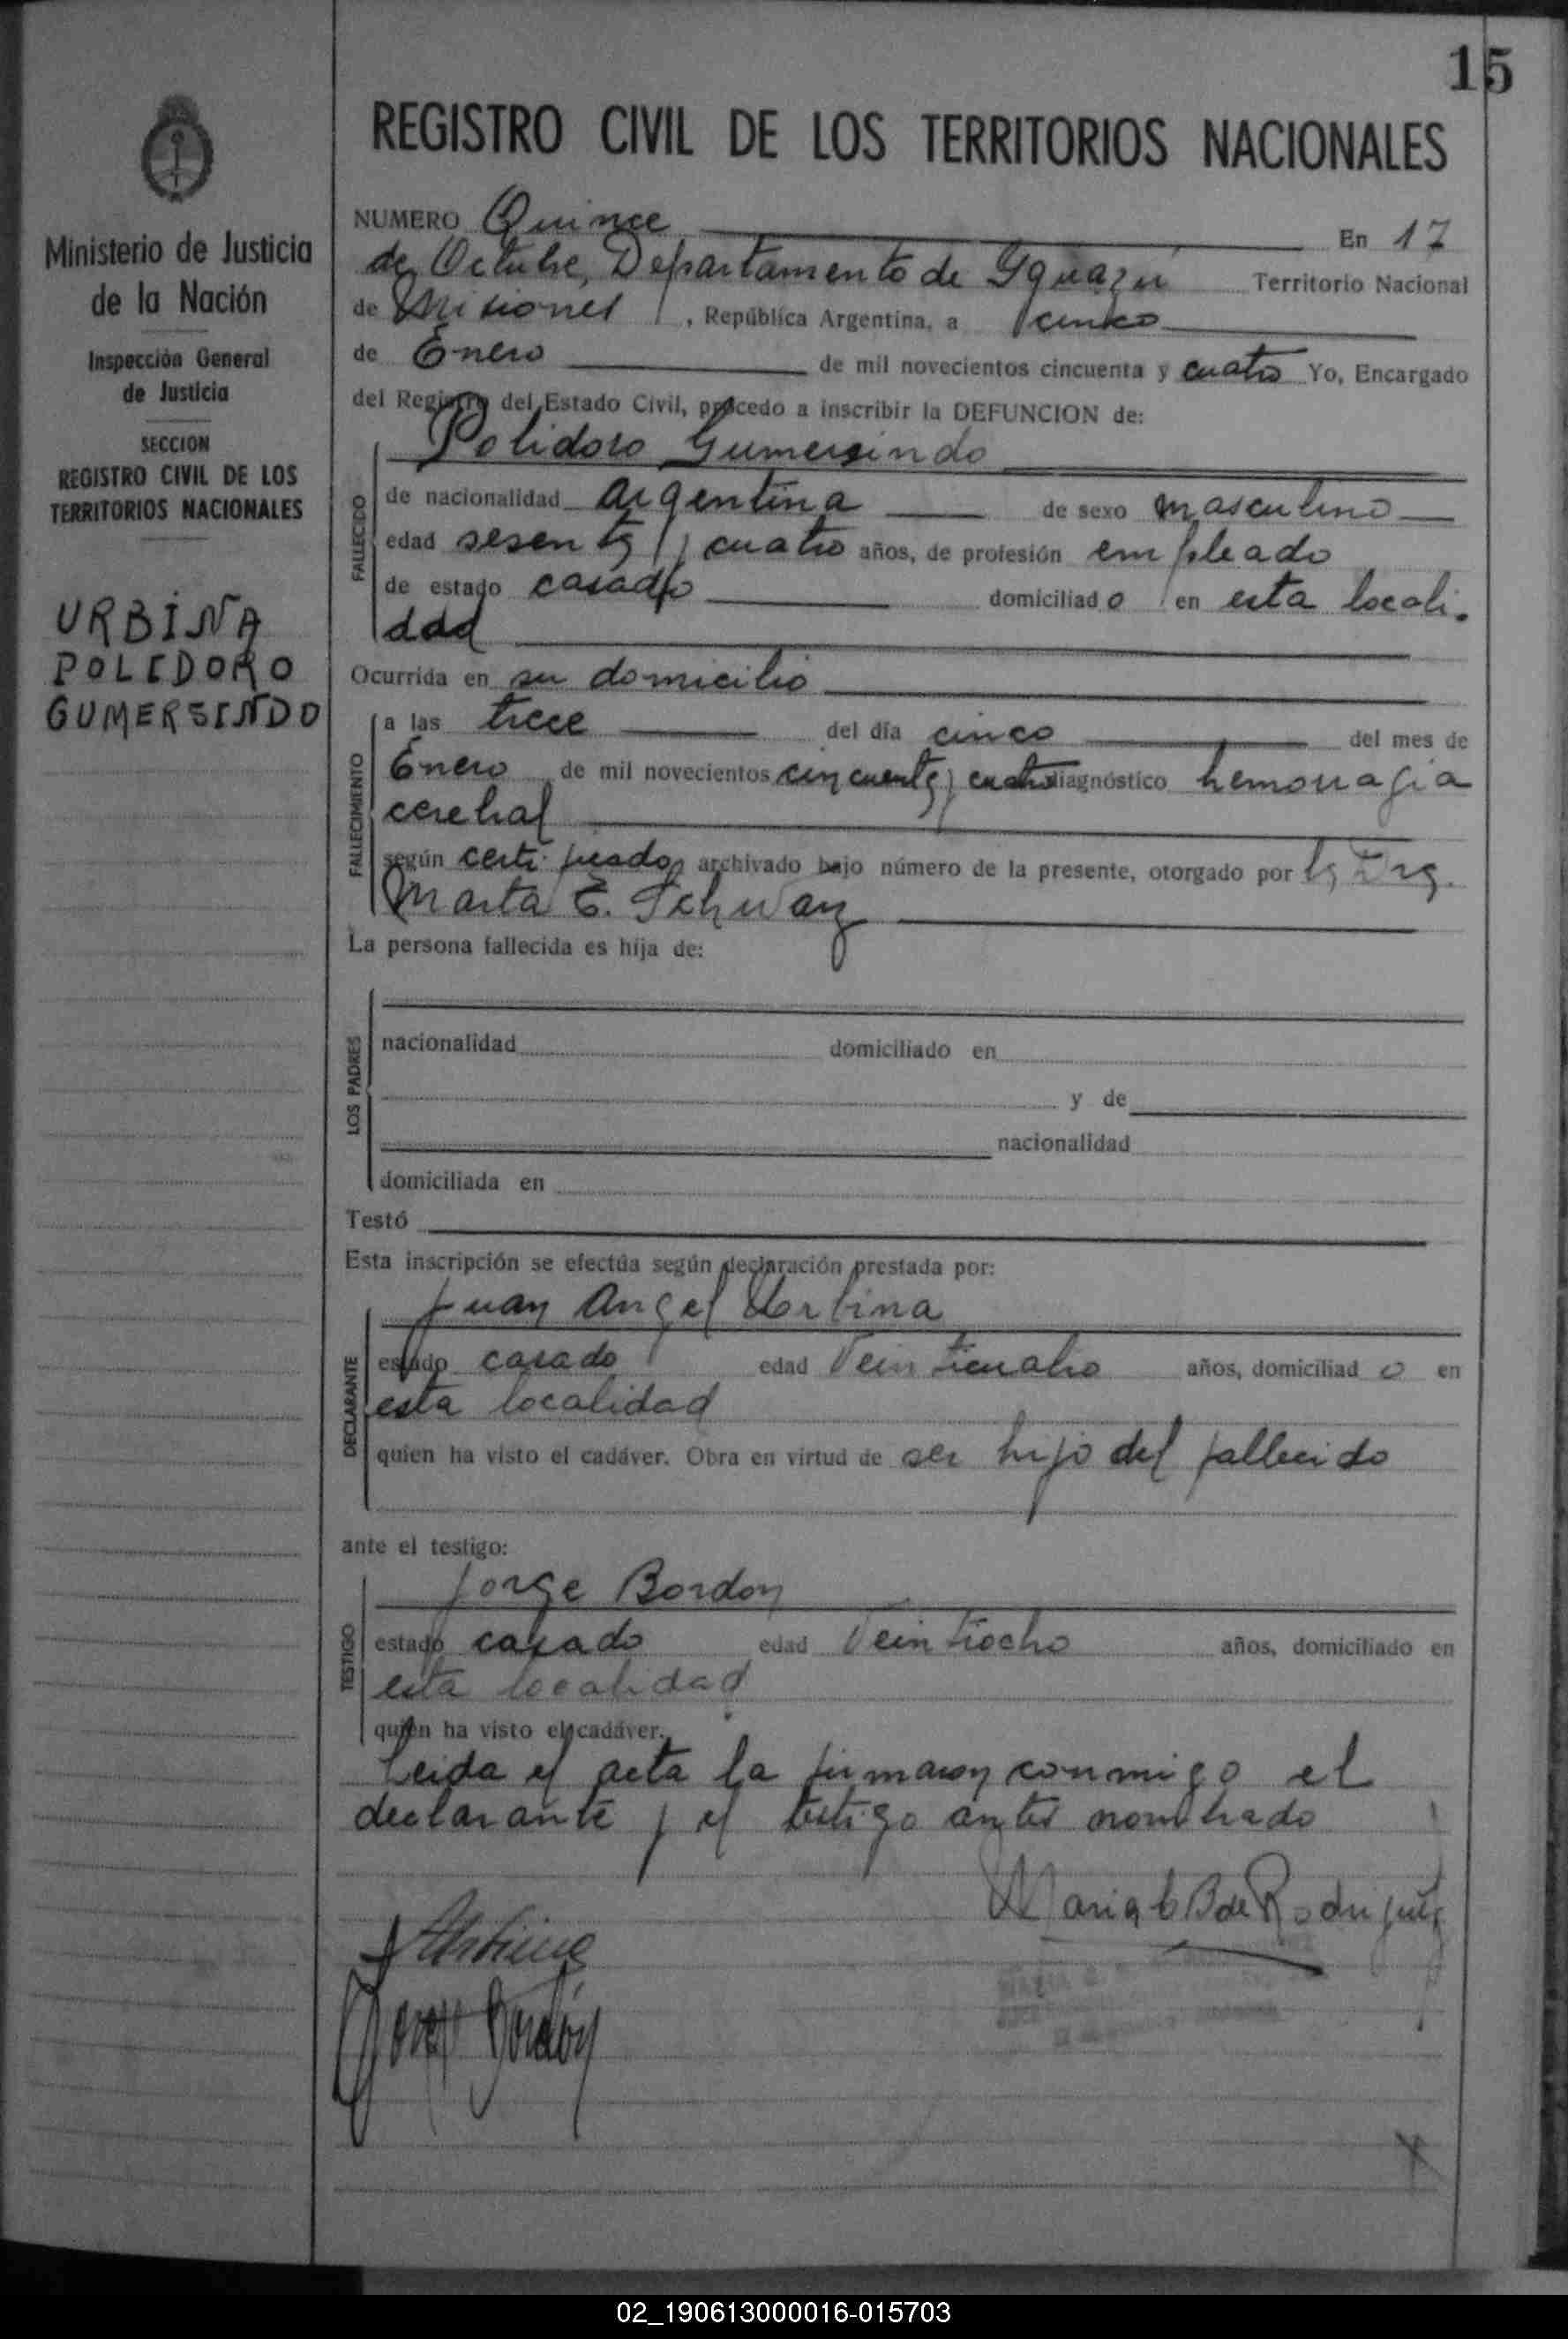 15
REGISTRO CIVIL DE LOS TERRITORIOS NACIONALES
Ministerio de Justicia
de la Nación
Inspección General
de Justicia
SECCION
REGISTRO CIVIL DE LOS
TERRITORIOS NACIONALES
URBINA
POLIDORO
GUMERSINDO
NUMERO Quince En 17
de Octubre, Departamento de Yguazú Territorio Nacional
de Misiones, República Argentina, a cinco
de Enero de mil novecientos cincuenta y cuatro Yo, Encargado
del Registro del Estado Civil, procedo a inscribir la DEFUNCION de:
Polidoro Gumersindo
FALLECIDO
de nacionalidad Argentina de sexo masculino
edad sesenta y cuatro años, de profesión empleado
de estado casado domiciliado en esta locali-
dad
Ocurrida en su domicilio
FALLECIMIENTO
a las trece del día cinco del mes de
Enero de mil novecientos cincuenta y cuatro diagnóstico hemorragia
cerebral
según certificado archivado bajo número de la presente, otorgado por la Dra.
Marta E. Schwarz
La persona fallecida es hija de:
LOS PADRES
nacionalidad domiciliado en
y de
nacionalidad
domiciliada en
Testó
Esta inscripción se efectúa según declaración prestada por:
Juan Angel Urbina
DECLARANTE
estado casado edad Veinticuatro años, domiciliado en
esta localidad
quien ha visto el cadáver. Obra en virtud de ser hijo del fallecido
ante el testigo:
Jorge Bordon
TESTIGO
estado casado edad Veintiocho años, domiciliado en
esta localidad
quien ha visto el cadáver.
Leida el acta la firmaron conmigo el
declarante y el testigo antes nombrado
Maria B de Rodriguez
JAUrbina
Jorge Bordón
02_190613000016-015703